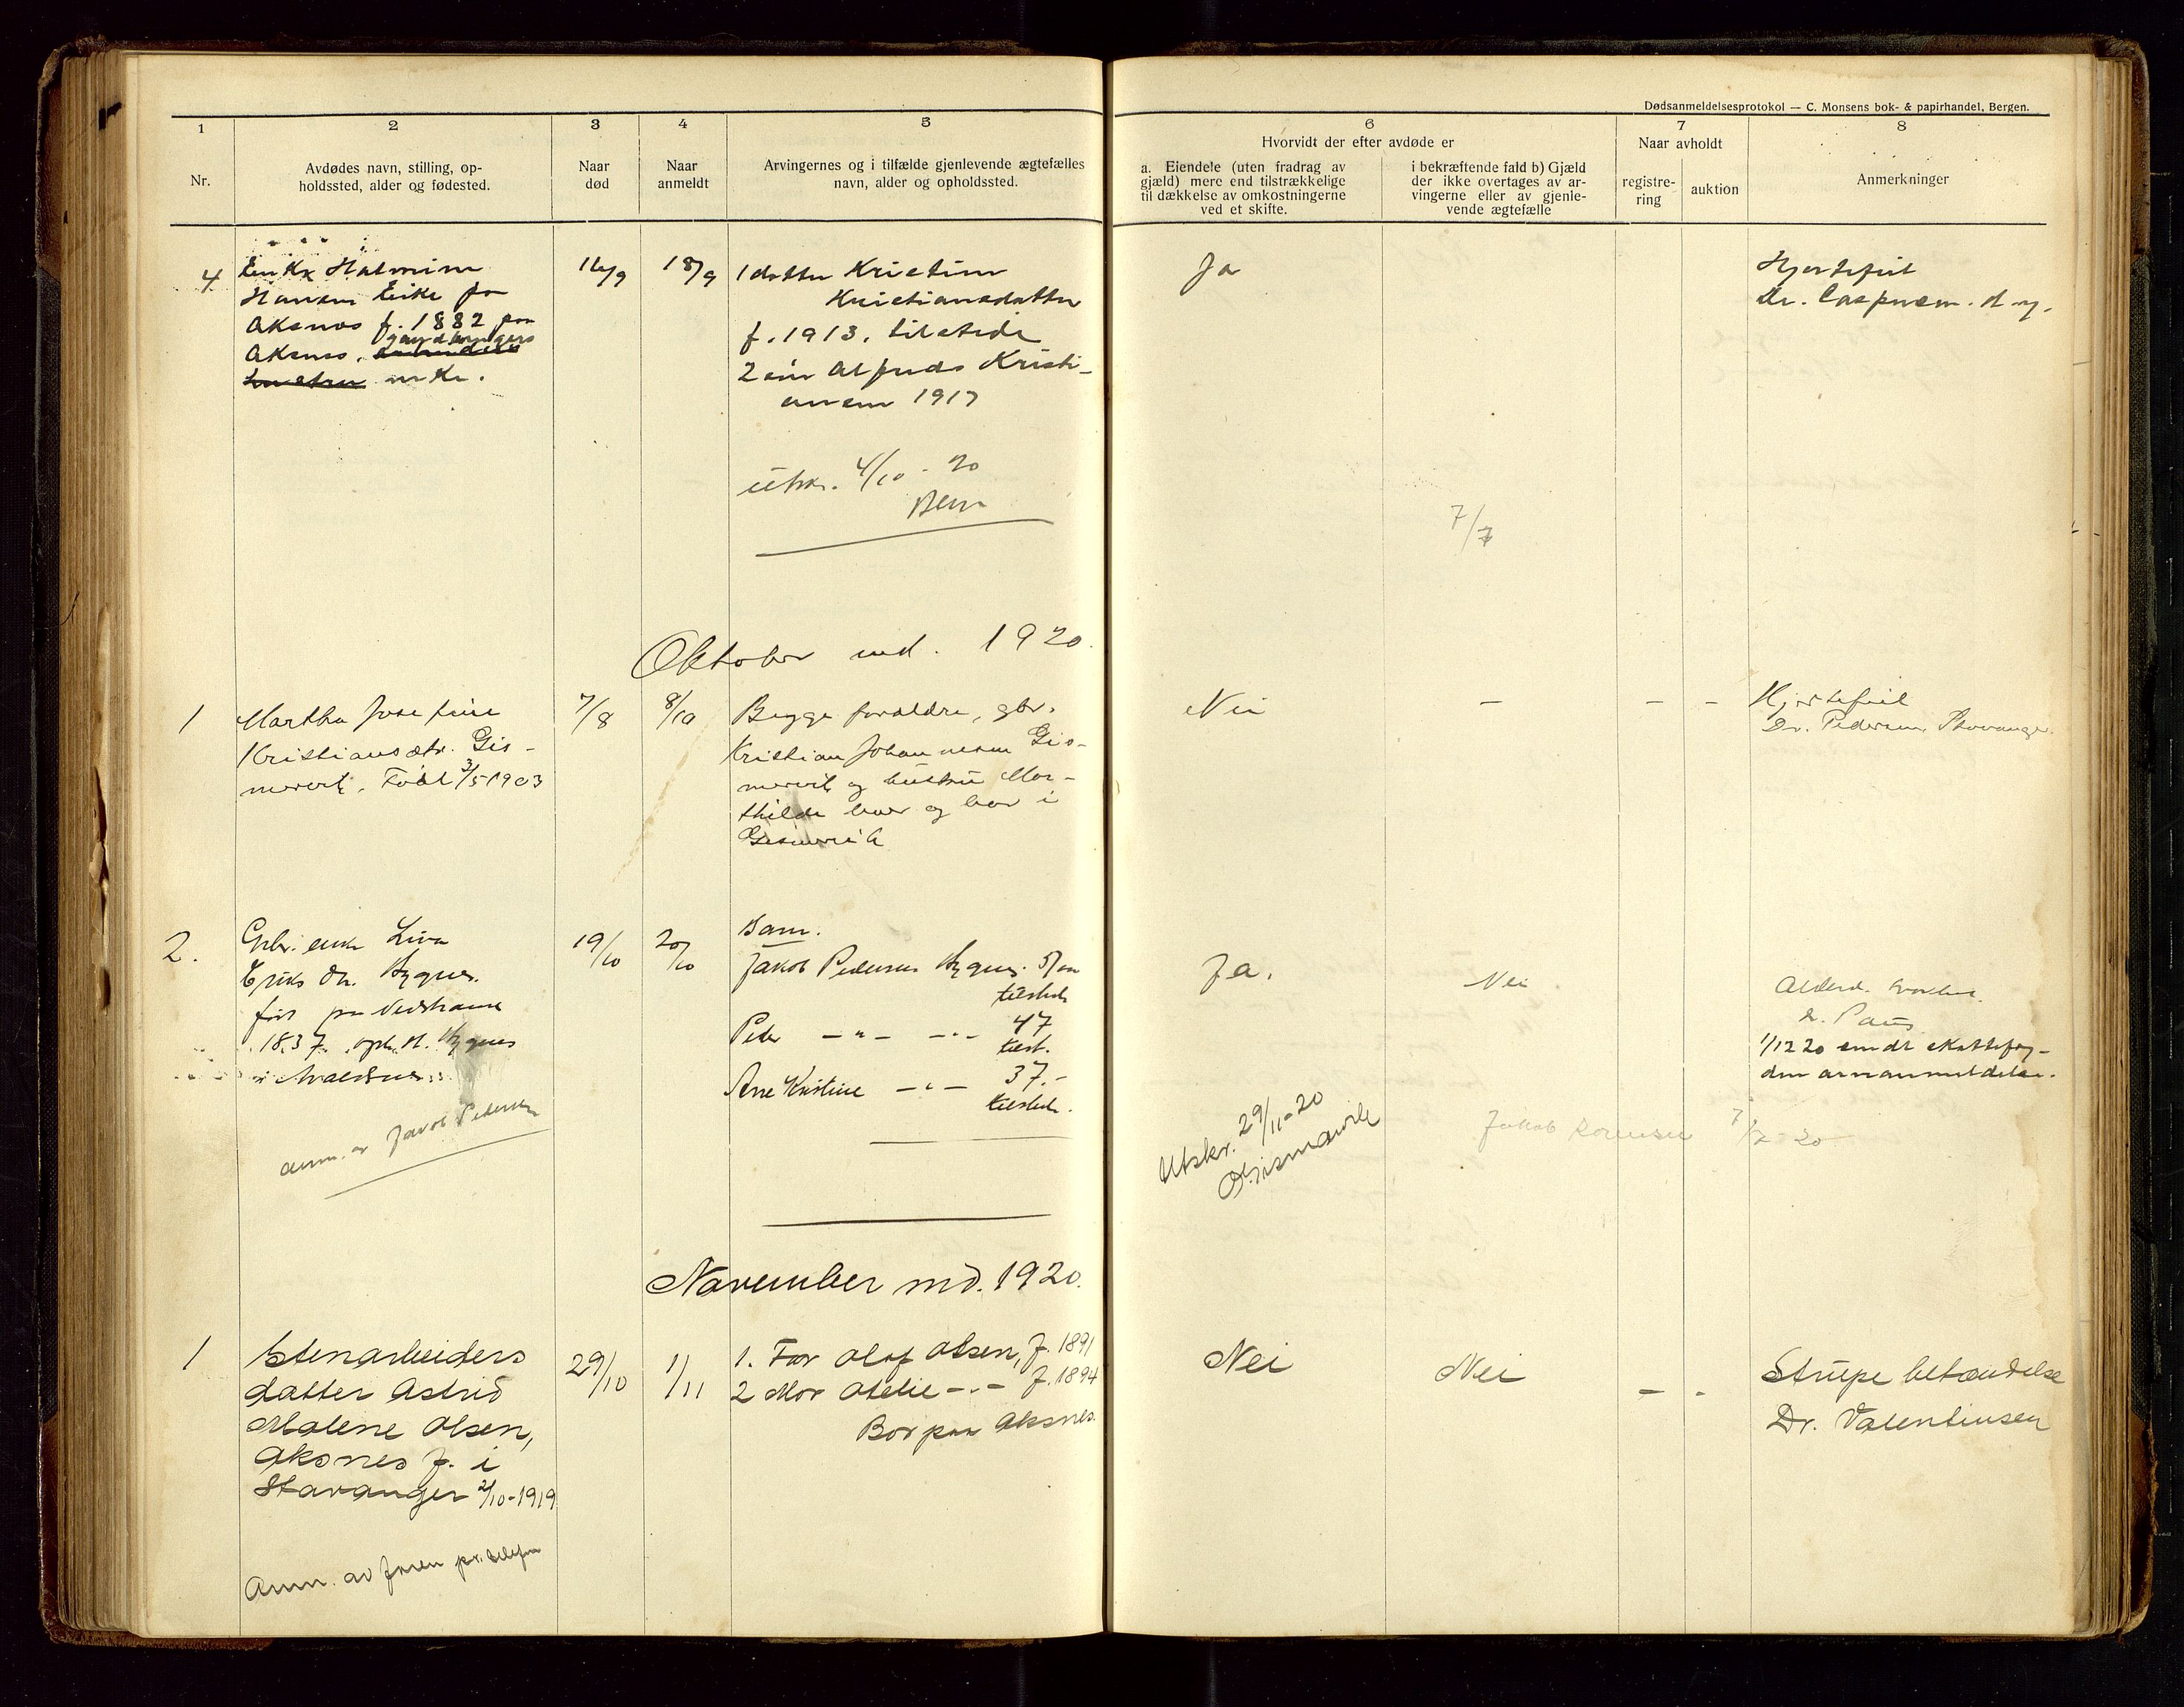 Dødsanmeldelsesprotokol — C. Monsens bok- & papirhandel, Bergen.
1
2
3
4
5
6
7
8
Nr.
Avdødes navn, stilling, op-
holdssted, alder og fødested.
Naar
død
Naar
anmeldt
Arvingernes og i tilfælde gjenlevende ægtefælles
navn, alder og opholdssted.
Hvorvidt der efter avdøde er
a. Eiendele (uten fradrag av
gjæld) mere end tilstrækkelige
til dækkelse av omkostningerne
ved et skifte.
i bekræftende fald b) Gjæld
der ikke overtages av ar-
vingerne eller av gjenle-
vende ægtefælle
Naar avholdt
registre-
ring
auktion
Anmerkninger
4
Enke Halmine
Hansen Eike fra
Aksnes f. 1882 paa
Aksnes. gaardbrugers
enke.
16/9
18/9
1 datter Kristine
Kristiansdatter
f. 1913. tilstede
2 sön Alfreds Kristi-
ansen 1917
utskr. 4/10 - 20
Ja
Hjertefeil
Dr.
7/7
Oktober md. 1920.
1
Martha Josefine
Kristiansdtr. Gis-
mervik. Född 3/5 1903
7/8
8/10
Begge forældre, gbr.
Kristian Johannesen Gis-
mervik og hustru Ma-
thilde lever og bor i
Gismervik
Nei
—
— —
Hjertefeil
Dr. Pedersen, Stavanger.
2.
Gbr. enke Liva
Eriks dtr. Hygnes.
föd paa Nedstrand
1837. oph.st. Hygnes
i Avaldsnes
anm. av Jacob Pedersen
19/10
20/10
Barn.
Jakob Pedersen Hygnes. 57 aar
tilstede
Peder — " — — " — 47
tilst.
Ane Kristine — " — 37.-
tilstede.
Ja.
Nei
Alderd. svakhet.
Dr. Paus
1/12 20 sendt skattefog-
den arvanmeldelse.
Utskr. 29/11-20
O. Gismarvik
Jakob Sörensen 7/2-20
November md. 1920.
1
Stenarbeiders
datter Astrid
Malene Olsen,
Aksnes f. i
Stavanger 2/10-1919
Anm. av faren pr. telefon
29/10
1/11
1. Far Olaf Olsen, f. 1891
2 Mor Otelie — " — f. 1894
Bor paa Aksnes.
Nei
Nei
— -
Strupe betændelse
Dr. Valentinsen